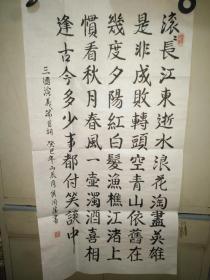 滚〻長江東逝水浪花淘盡英雄
是非成敗轉頭空青山依舊在
幾度夕陽紅白髮漁樵江渚上
慣看秋月春風一壺濁酒喜相
逢古今多少事都付笑談中
三國演義 首詞 癸巳年 書